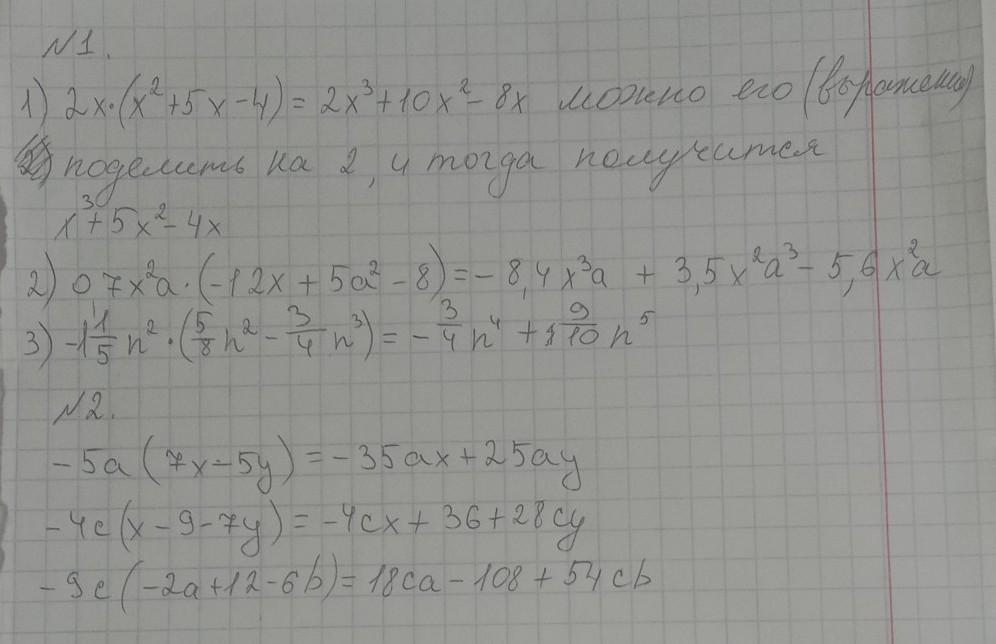 N1.
1) 2x·(x²+5x-4)=2x³+10x²-8x можно его (выражение)
поделить на 2, и тогда получится
x³+5x²-4x
2) 0 7x²a·(-12x+5a²-8)=-8,4x³a+3,5x²a³-5,6x²a
3) -1 1/5 n²·(5/8 n²-3/4 n³)=-3/4 n⁴+9/10 n⁵
N2.
-5a(7x-5y)=-35ax+25ay
-4c(x-9-7y)=-4cx+36+28cy
-9c(-2a+12-6b)=18ca-108+54cb